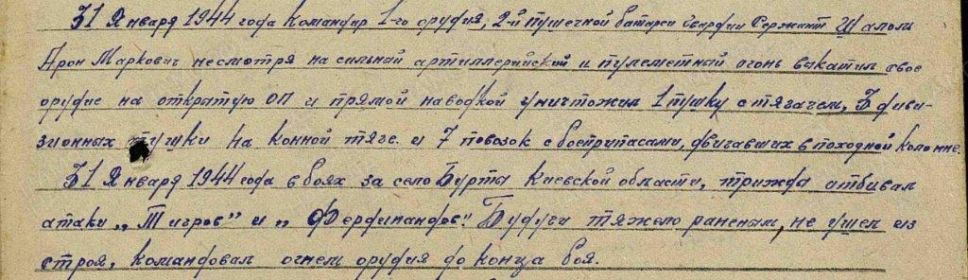 31 Января 1944 года командир 1-го орудия, 2-й пушечной батареи Гвардии Сержант Шапол
Арон Маркович несмотря на сильный артиллерийский и пулеметный огонь выкатил свое
орудие на открытую ОП и прямой наводкой уничтожил 1 пушку с тягачем, 3 диви-
зионных пушки на конной тяге. и 7 повозок с боеприпасами, двигавших в походной колонне.
31 Января 1944 года в боях за село Бурта Киевской области, трижда отбивал
атаки „Тигров" и „Фердинандов". Будучи тяжело раненым, не ушел из
строя, командовал огнем орудия до конца боя.